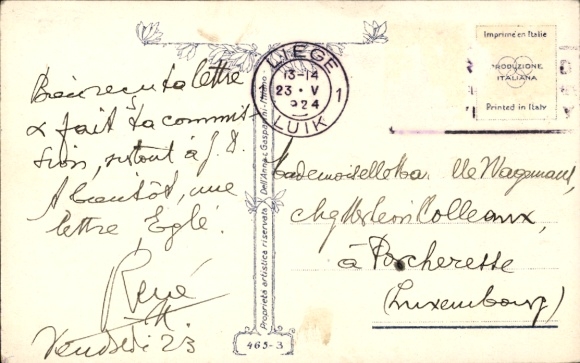 Bien reçu ta lettre
& fait ta commis
sion, surtout à J. D.
A bientôt, une
lettre, Eglé.
René
Vendredi 23
LIEGE
13-14
23 · V
1
924
LUIK
Imprimé en Italie
PRODUZIONE
ITALIANA
Printed in Italy
Mademoiselle Ma. De Wagemans,
Chez Léon Colleaux,
à Porcheresse
(Luxembourg)
Proprieta artistica riservata
Dell'Anna & Gasparini-Milano
465-3